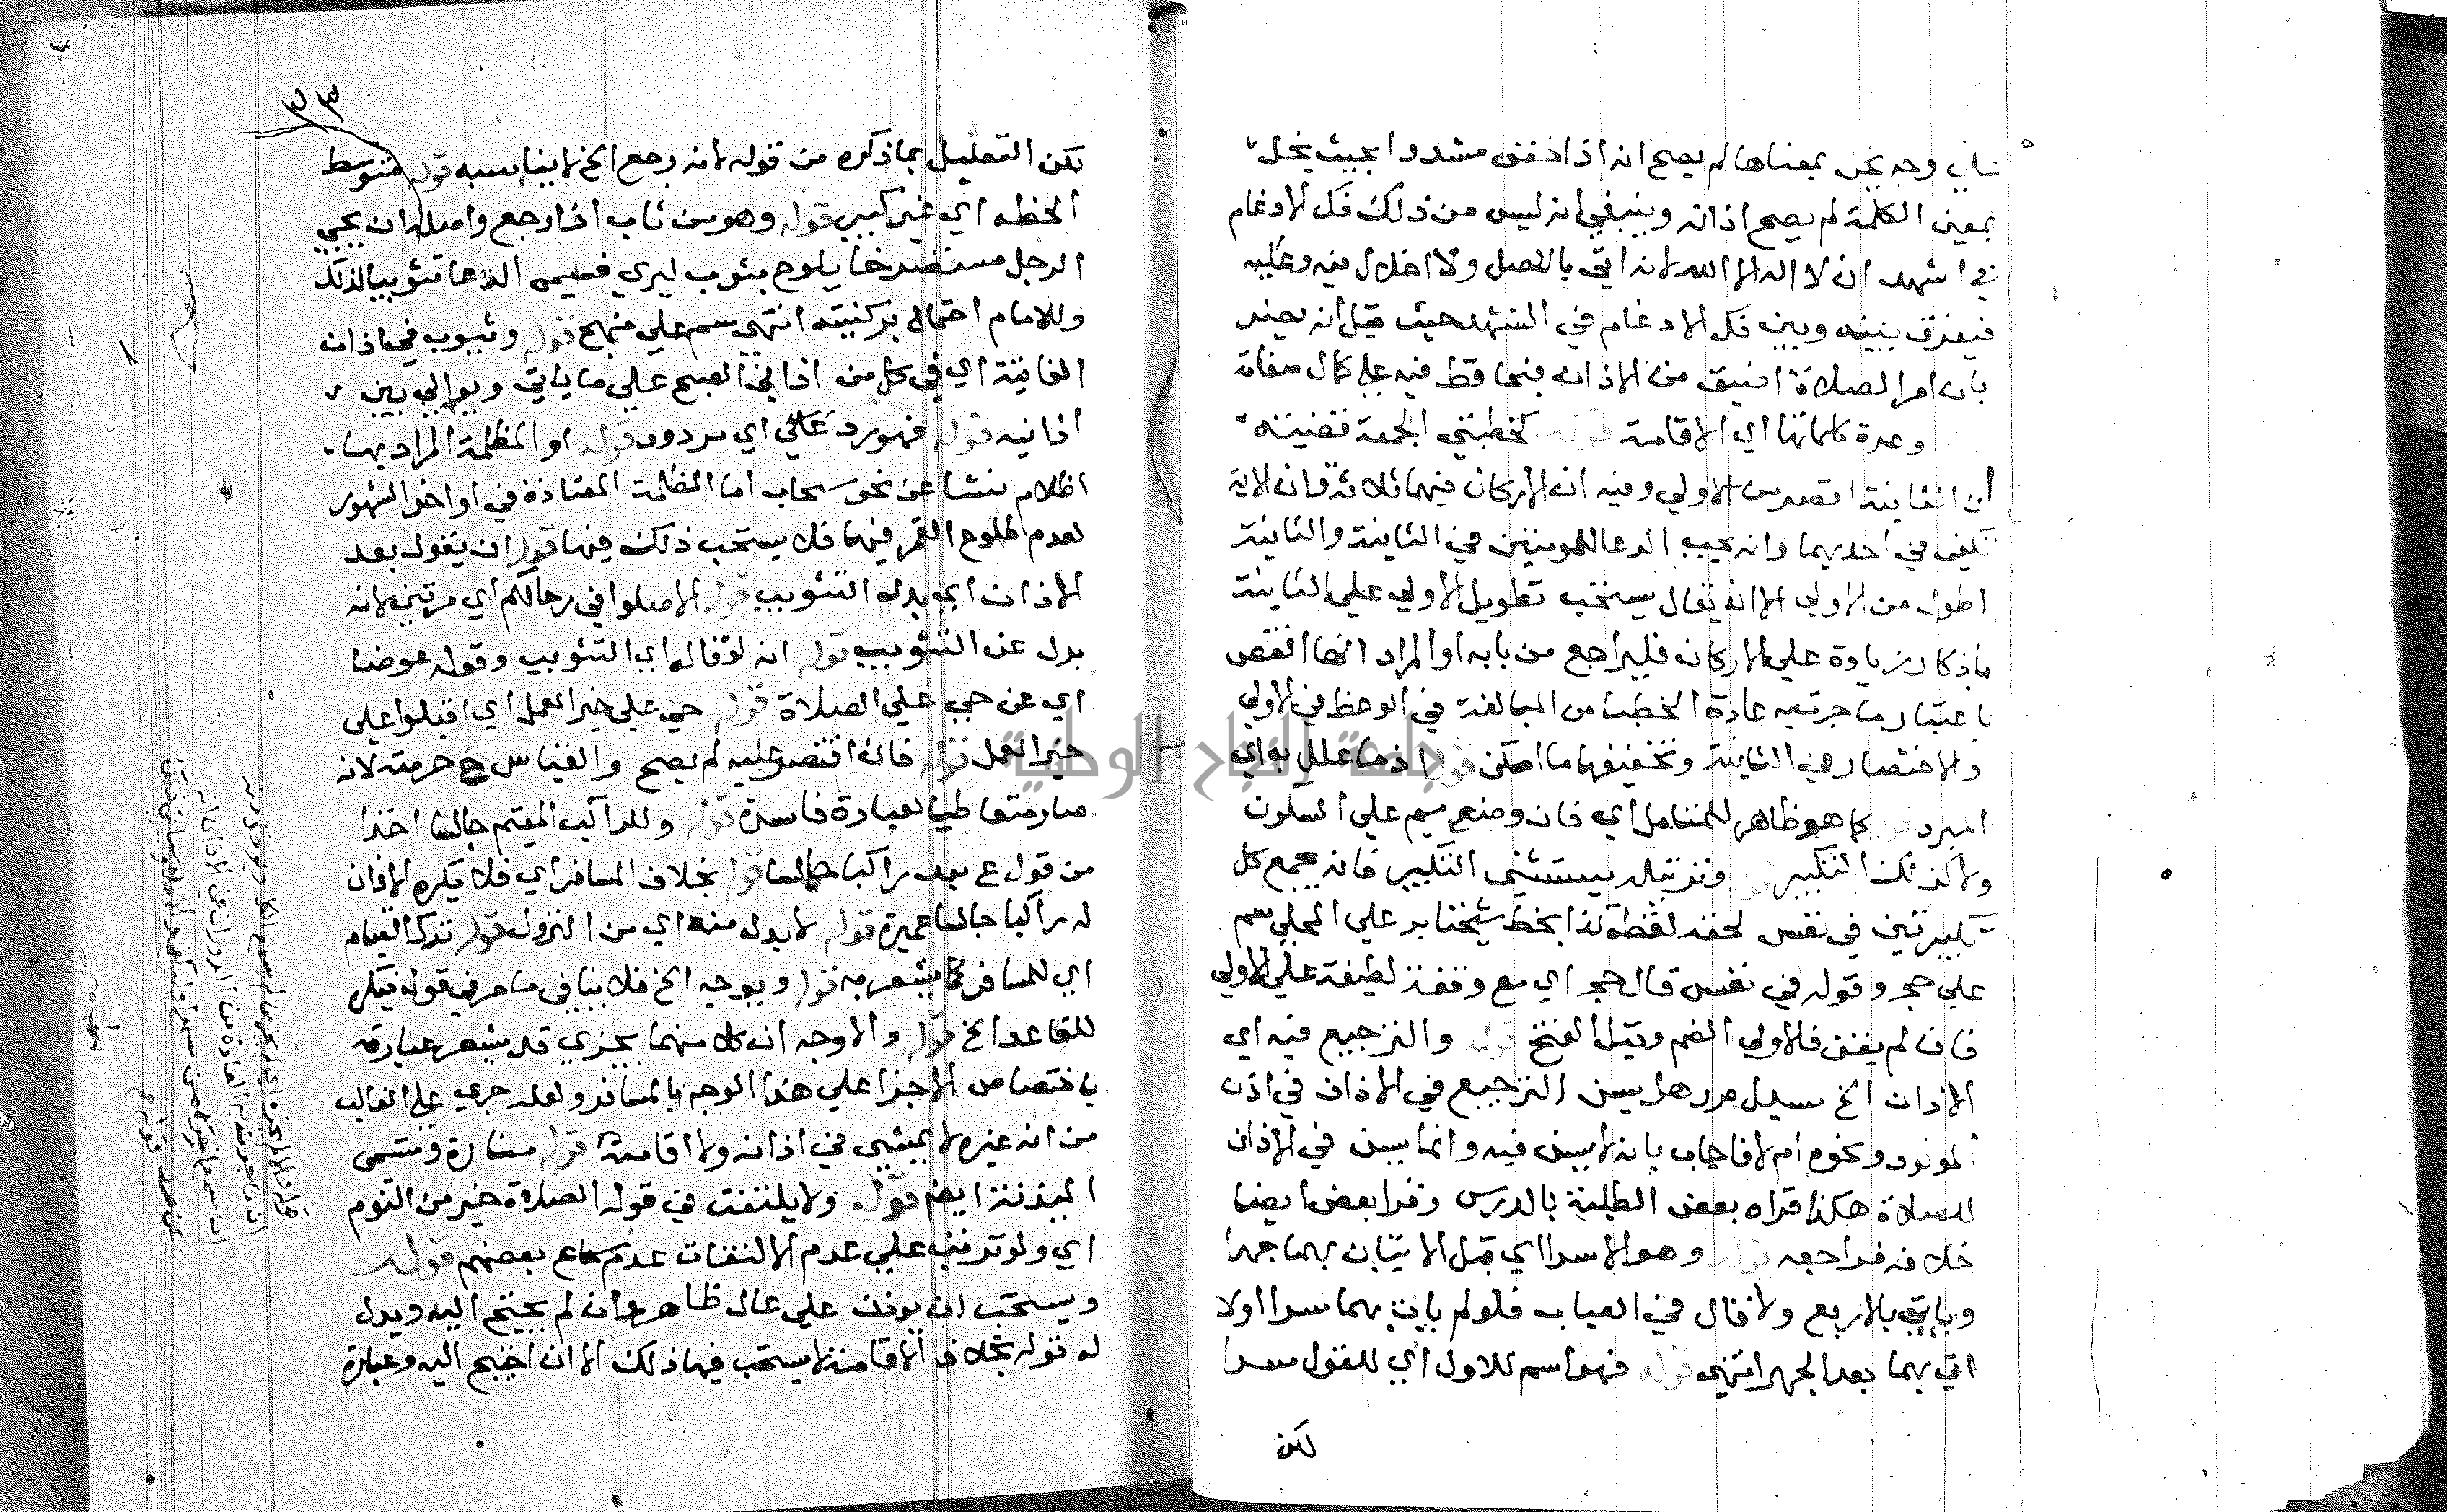 وجه يخل بمعناها لم يصح انه اذا خفف مشددا بحيث يخل
بمعنى الكلمة لم يصح اذانه وينبغي انه ليس من ذلك فك الادغام
في اشهد ان لا اله الا الله لانه اتى بالاصل ولا اخلال فيه وعليه
فيفرق بينه وبين فك الادغام في التشهد حيث قيل انه يضر
بان امر الصلاة اضيق من الاذان فيحافظ فيه على كمال صفاته
وعدة كلماتها اي الاقامة قوله كخطبتي الجمعة قضيته
ان الثانية اقصر من الاولي وفيه ان الاركان فيهما ثلاثة وان الاية
تكفي في احديهما وانه يجب الدعا للمومنين في الثانية والثانية
اطول من الاولى الا ان يقال يستحب تطويل الاولي علي الثانية
زيادة علي الاركان فليراجع من بابه او المراد انها انقص
باعتبار ما جرت به عادة الخطبا من المبالغة في الوعظ في الاولى
والاختصار في الثانية وتخفيفها ما امكن قوله اذ ما علل به اي
المبرد قوله كما هو ظاهر للمتامل اي فان وضع ميم علي السكون
ولا كذلك التكبير قوله وترتيله يستثنى التكبير فانه يجمع كل
تكبيرتين في نفس لخفة لفظه كذا بخط شيخنا بر علي المحلي سم
علي حجر وقوله في نفس قال حجر اي مع وقفة لطيفة علي الاولى
فان لم يقف فالاولي الضم وقيل الفتح قوله والترجيع فيه اي
الاذان الخ سيل مر هل يسن الترجيع في الاذان في اذن
المولود ونحوه ام لا فاجاب بانه لا يسن فيه وانما يسن في الاذان
للصلاة هكذا قراه بعض الطلبة بالدرس وقرا بعض ايضا
خلافه فراجعه قوله وهو الاسرا اي قبل الاتيان بهما جهرا
وياتي بالاربع ولا قال في العباب فلو لم يات بهما سرا اولا
اتي بهما بعد الجهر انتهى قوله فهو اسم للاول اي للقول سرا
لكن
٣٣
لكن التعليل بما ذكره من قوله لانه رجع الخ لا يناسبه قوله متوسط
الخطه اي غير كبير قوله وهو من ثاب اذا رجع واصله ان يجي
الرجل مستصرخا يلوح بثوب ليري فسمى الدعا تثويبا لذلك
وللامام احتمال بركنيته انتهى سم علي منهج قوله ويثوب في اذان
الفايتة اي في كل من اذاني الصبح علي ما ياتي ويوالي بين
اذانيه قوله فهو رد علي اي مردود قوله او المظلمة المراد بها
اظلام ينشا عن نحو سحاب اما الظلمة المعتادة في اواخر الشهور
لعدم طلوع القمر فيها فلا يستحب ذلك فيها قوله ان يقول بعد
الاذان اي بدل التثويب قوله الا صلوا في رحالكم اي مرتين لانه
بدل عن التثويب قوله انه لو قاله اي التثويب وقوله عوضا
اي عن حي علي الصلاة قوله حي علي خير العمل اي اقبلوا علي
خير العمل قوله فان اقتصر عليه لم يصح والقياس ح حرمته لانه
صار متعاطيا لعبادة فاسدة قوله وللراكب المقيم جالسا اخذا
من قول ع بعد راكبا جالسا قوله بخلاف المسافر اي فلا يكره الاذان
له راكبا جالسا عميرة قوله لا بد له منه اي من النزول قوله ترك القيام
اي للمسافر كما يشعر به قوله ويوجه الخ فلا ينافي ما مر في قوله فيكره
للقاعد الخ قوله والاوجه ان كلا منهما يجزي قد يشعر عبارته
باختصاص الاجزا علي هذا الوجه بالمسافر ولعله جرى علي الغالب
من ان غيره لا يمشي في اذانه ولا اقامته قوله منارة وتسمى
الميذنة ايضا قوله ولا يلتفت في قوله الصلاة خير من النوم
اي ولو ترتب علي عدم الالتفات عدم سماع بعضهم قوله
ويستحب ان يوذن علي عال ظاهره وان لم يحتج اليه ويدل
له قوله بخلاف الاقامة لا يستحب فيها ذلك الا ان احتيج اليه وعبارة